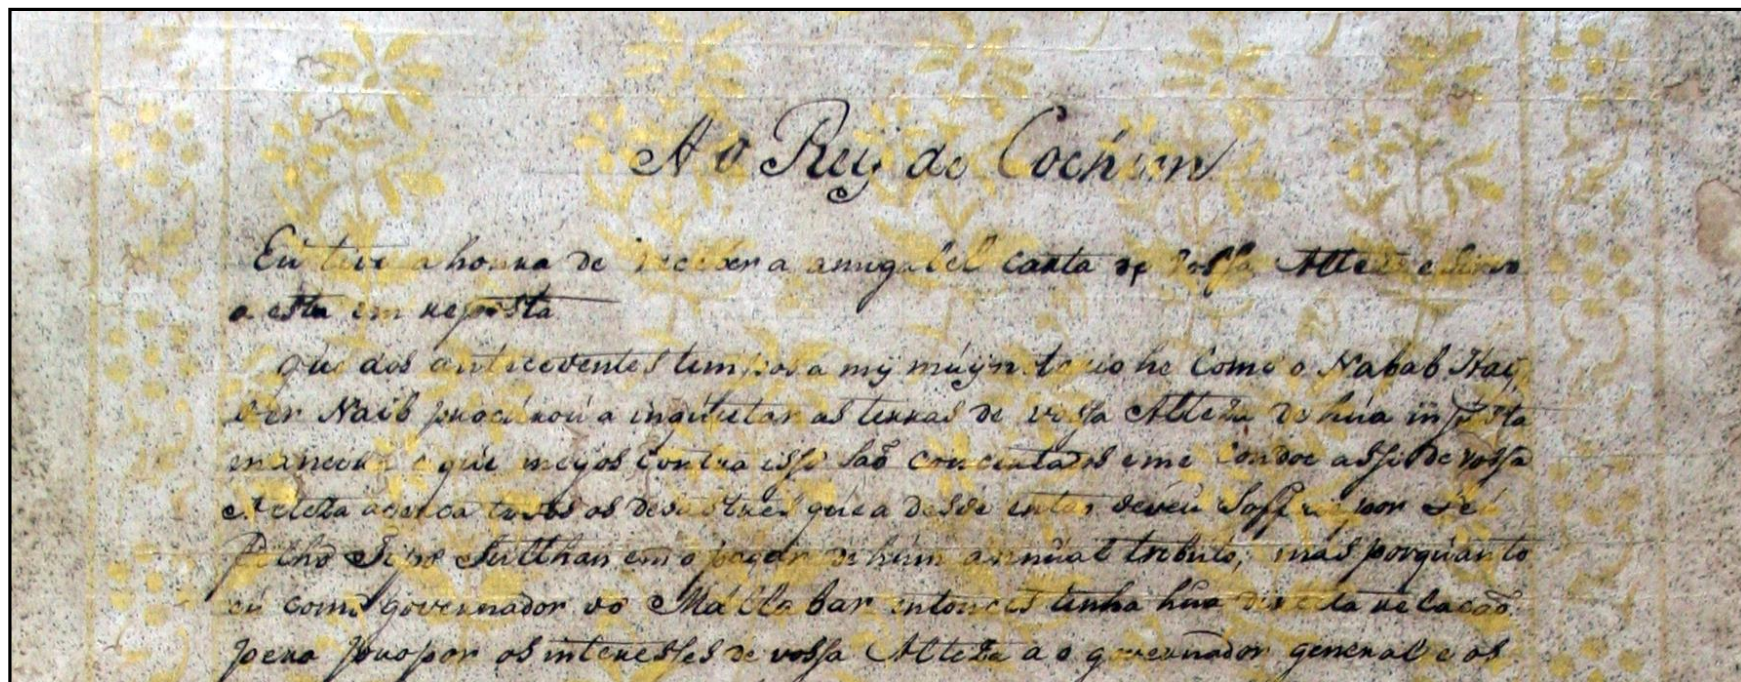 A o Reÿ de Cochim
Eu tive a honra de receber a amigabel carta de vossa Alteza e sirvo
a esta em reposta
que dos antecedentes tempos a mÿ múÿ notorio he como o Nabab Haÿ
der Naib procúroú a inquietar as terras de vossa Alteza de húa injústa
maneira e que meyos contra isso saõ concertados e me condoe assi de vossa
Alteza acerca todos os desastres que a desde entaõ deveu soffrer por seú
filho Sulthan em o pagar de húm annúal tributo, mas porquanto
eú como governador do Mallabar entonces tenha húa directa relacaõ
pera propor os interesses de vossa Alteza a o governador general e os